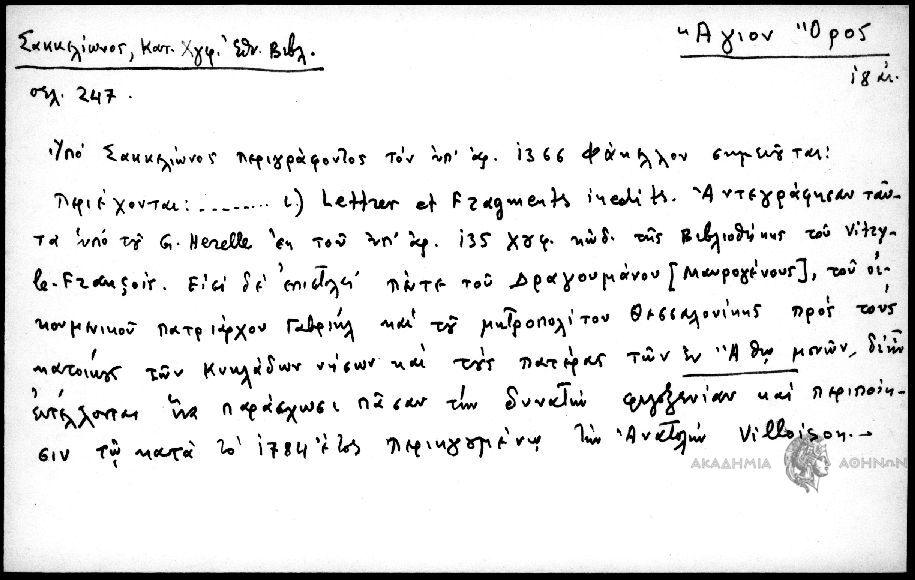 Σακκελίωνος, Κατ. Χγφ. Ἐθν. Βιβλ.
Ἅγιον Ὄρος
ι8 αἰ.
σελ. 247.
Ὑπό Σακκελίωνος περιγράφοντος τόν ὑπ' ἀρ. 1366 φάκελλον σημειοῦται:
Περιέχονται: ......... ι) Lettres et Fragments inedits. Ἀντεγράφησαν ταῦ-
τα ὑπό τοῦ G. Herelle ἐκ τοῦ ὑπ' ἀρ. 135 χγφ. κώδ. τῆς Βιβλιοθήκης τοῦ Vitry-
le-François. Εἰσί δέ ἐπιστολαί πέντε τοῦ Δραγουμάνου [Μαυρογένους], τοῦ οἰ-
κουμενικοῦ πατριάρχου Γαβριήλ καί τοῦ μητροπολίτου Θεσσαλονίκης πρός τούς
κατοίκους τῶν Κυκλάδων νήσων καί τούς πατέρας τῶν ἐν Ἄθῳ μονῶν, δι' ὧν
ἐντέλλονται ἵνα παράσχωσι πᾶσαν τήν δυνατήν φιλοξενίαν καί περιποίη-
σιν τῷ κατά τό 1784 ἔτος περιηγουμένῳ τήν Ἀνατολήν Villoison.
ΑΚΑΔΗΜΙΑ ΑΘΗΝΩΝ